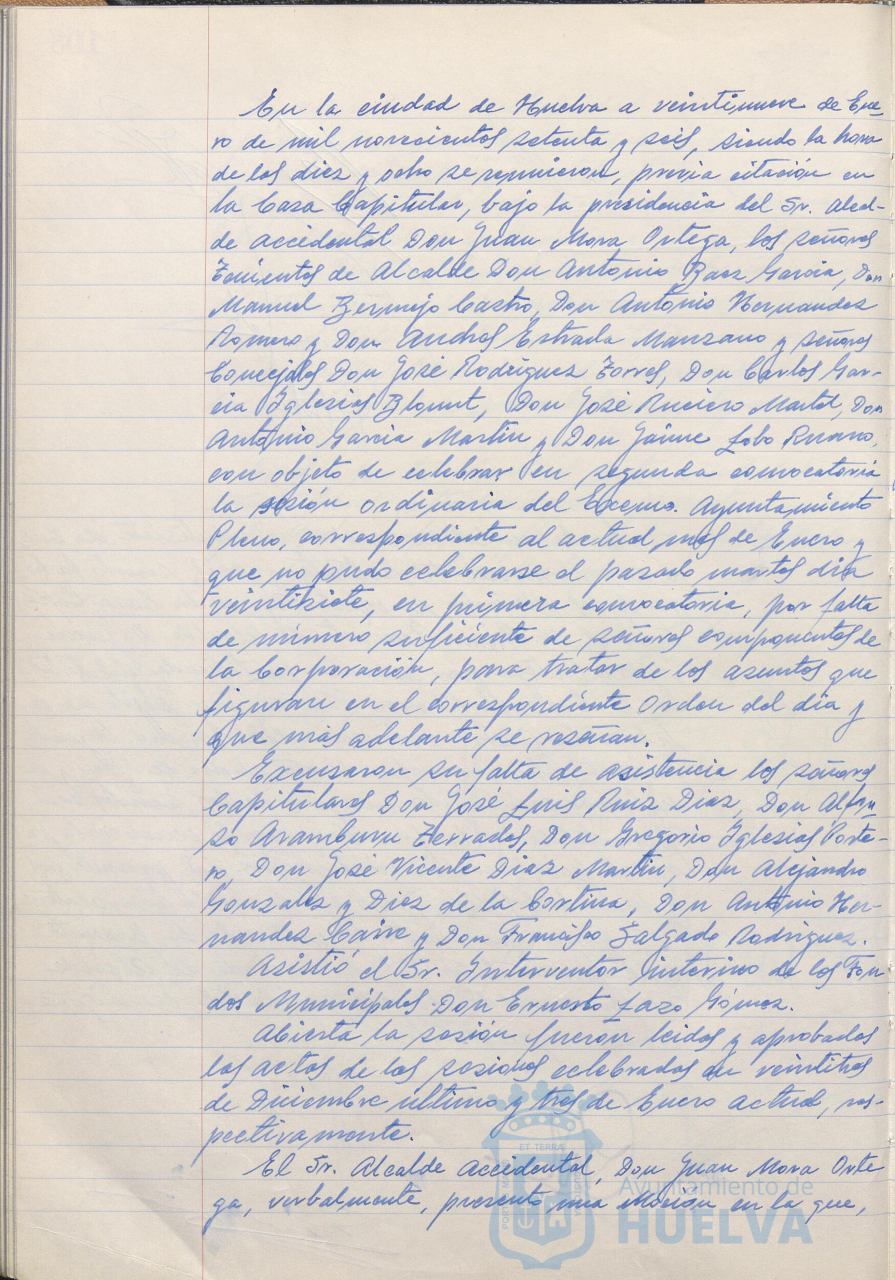 En la ciudad de Huelva a veintinueve de Ene-
ro de mil novecientos setenta y seis, siendo la hora
de las diez y ocho se reunieron, previa citación en
la Casa Capitular, bajo la presidencia del Sr. Alcal-
de accidental Don Juan Mora Ortega, los señores
Tenientes de Alcalde Don Antonio Baez Garcia, Don
Manuel Bermejo Castro, Don Antonio Hernandez
Romero y Don Andres Estrada Manzano y señores
Concejales Don José Rodriguez Torres, Don Carlos Gar-
cia Iglesias Blount, Don José Ruciero Martel, Don
Antonio Garcia Martin y Don Jaime Lobo Ruano,
con objeto de celebrar en segunda convocatoria
la sesión ordinaria del Excmo. Ayuntamiento
Pleno, correspondiente al actual mes de Enero y
que no pudo celebrarse el pasado martes dia
veintisiete, en primera convocatoria, por falta
de número suficiente de señores componentes de
la Corporación, para tratar de los asuntos que
figuran en el correspondiente Orden del dia y
que más adelante se reseñan.
Excusaron su falta de asistencia los señores
Capitulares Don José Luis Ruiz Diaz, Don Alfon-
so Aramburu Terrades, Don Gregorio Iglesias Porte-
ro, Don José Vicente Diaz Martin, Don Alejandro
Gonzalez y Diez de la Cortina, Don Antonio Her-
nandez y Don Francisco Salgado Rodriguez.
Asistió el Sr. Interventor interino de los Fon-
dos Municipales Don Ernesto Lazo Gómez.
Abierta la sesión fueron leidas y aprobadas
las actas de las sesiones celebradas en veintitres
de Diciembre ultimo y tres de Enero actual, res-
pectivamente.
El Sr. Alcalde accidental, Don Juan Mora Orte
ga, verbalmente, presentó una Moción en la que,
ET TERRÆ
Ayuntamiento de
HUELVA